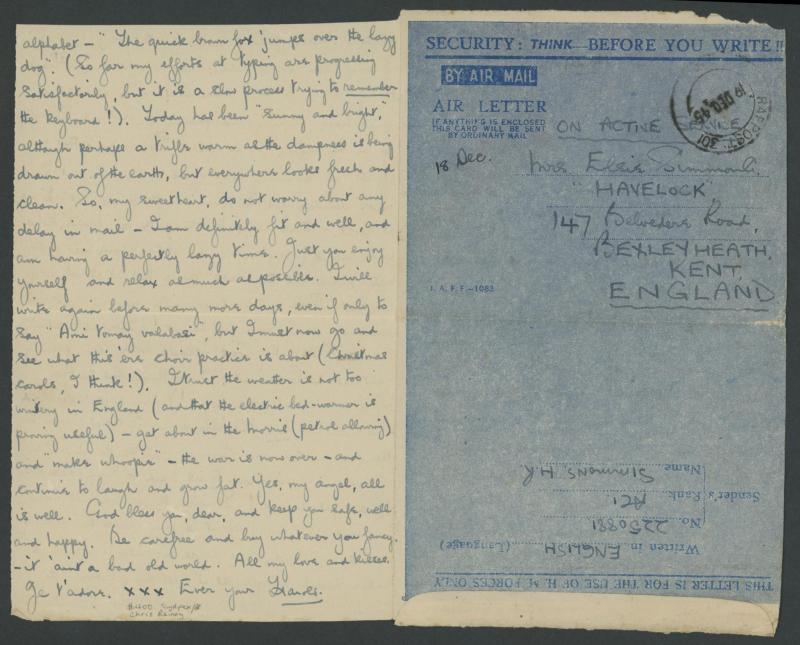 alphabet – "The quick brown fox jumps over the lazy
dog". (So far my efforts at typing are progressing
satisfactorily, but it is a slow process trying to remember
the keyboard!). Today has been "sunny and bright",
although perhaps a trifle warm as the dampness is being
drawn out of the earth, but everywhere looks fresh and
clean. So, my sweetheart, do not worry about any
delay in mail – I am definitely fit and well, and
am having a perfectly lazy time. Just you enjoy
yourself and relax as much as possible. I will
write again before many more days, even if only to
say "Ami tomay valabasi", but I must now go and
see what this 'ere choir practice is about (Christmas
carols, I think!). I trust the weather is not too
wintery in England (and that the electric bed-warmer is
proving useful) – get about in the Morris (petrol allowing)
and "make whoopie" – the war is now over – and
continue to laugh and grow fat. Yes, my angel, all
is well. God bless you, dear, and keep you safe, well
and happy. Be carefree and buy whatever you fancy
– it 'aint a bad old world. All my love and kisses.
Je t'adore. xxx Ever your Harold.
Chris Rainey
SECURITY: THINK BEFORE YOU WRITE !!
BY AIR MAIL
AIR LETTER
IF ANYTHING IS ENCLOSED
THIS CARD WILL BE SENT
BY ORDINARY MAIL
ON ACTIVE SERVICE
19 DEC 45
18 Dec.
Mrs. Elsie Simmons,
"HAVELOCK",
147 Belvedere Road,
BEXLEYHEATH,
KENT,
ENGLAND
I. A. F. F.—1083
THIS LETTER IS FOR THE USE OF H. M. FORCES ONLY
Written in ENGLISH (Language)
No. 2250881
Sender's Rank AC1
Name SIMMONS H.R